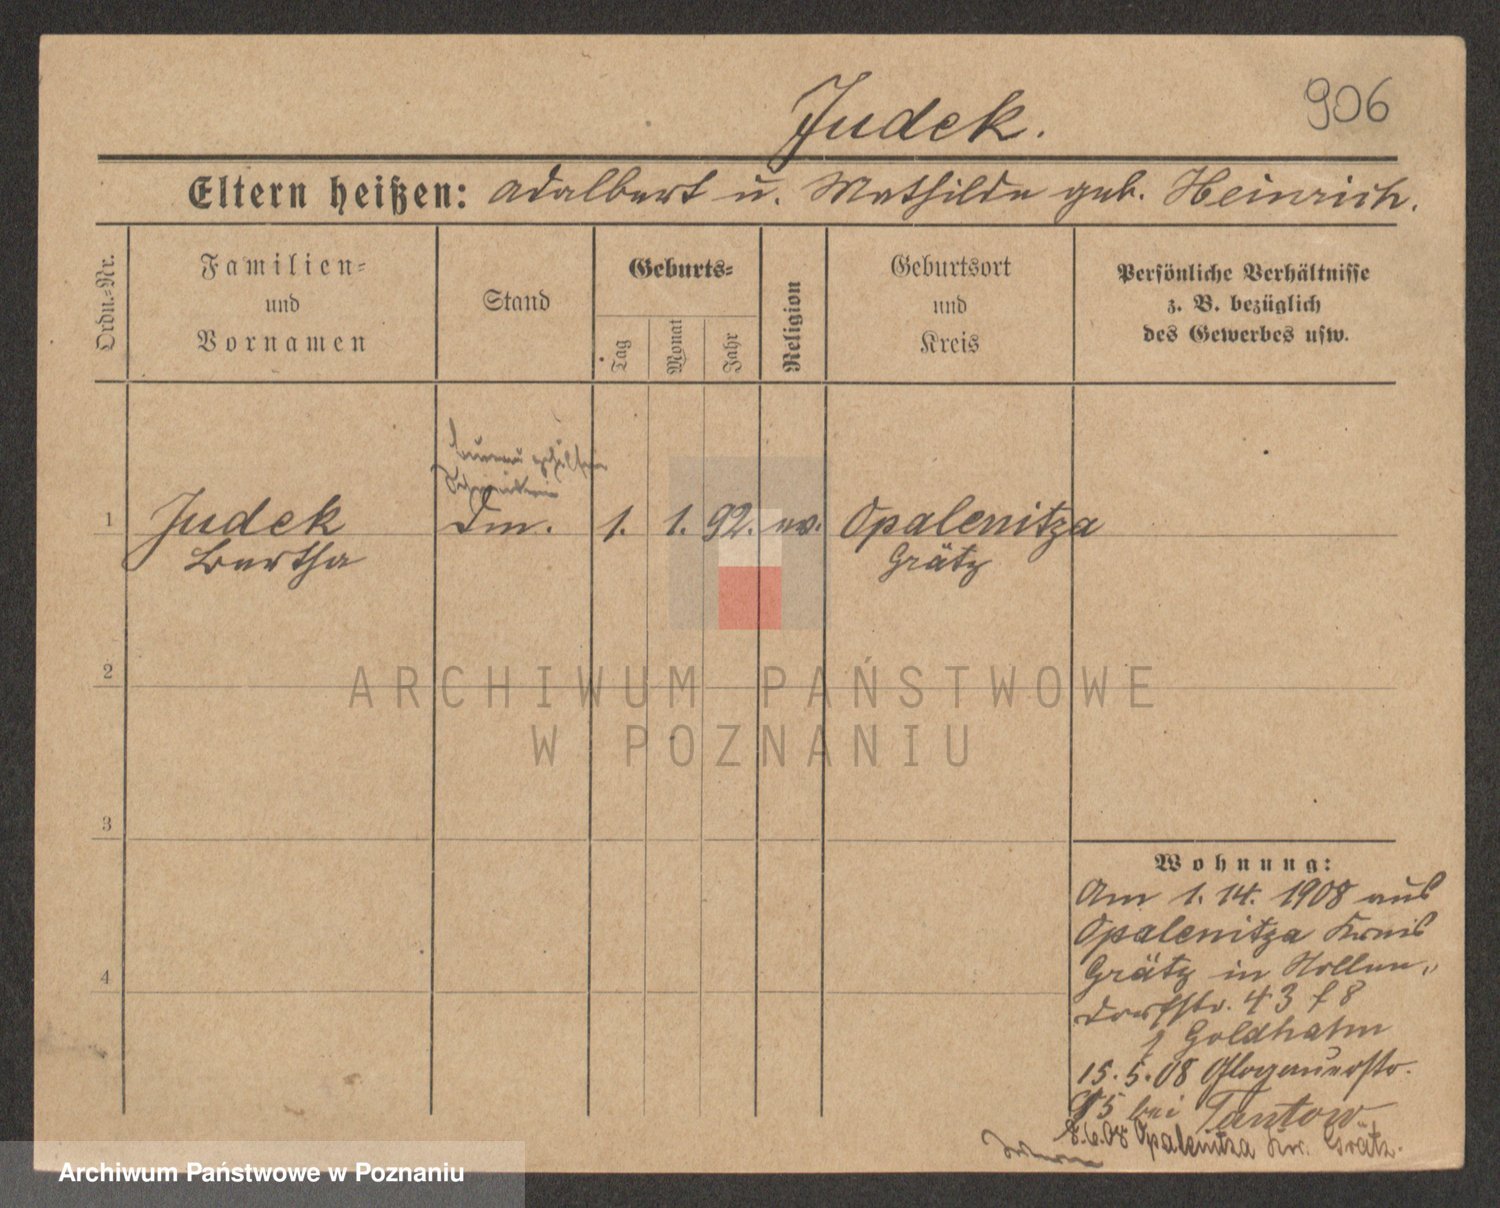 Judek.
906
Eltern heißen: Adalbert u. Mathilde geb. Heinrich.
Ordn.-Nr.
Familien-
und
Vornamen
Stand
Geburts-
Tag
Monat
Jahr
Religion
Geburtsort
und
Kreis
Persönliche Verhältnisse
z. B. bezüglich
des Gewerbes usw.
1
Judek
Bertha
Dm.
1.
1.
92.
ev.
Opalenitza
Grätz
2
ARCHIWUM PAŃSTWOWE
W POZNANIU
3
4
Wohnung:
Am 1. 14. 1908 aus
Opalenitza Kreis
Grätz in Hollen-
dorfstr. 43 f 8
Goldhahn
15.5.08 Glogauerstr.
bei Tantow
8.6.08 Opalenitza Kr. Grätz.
Archiwum Państwowe w Poznaniu